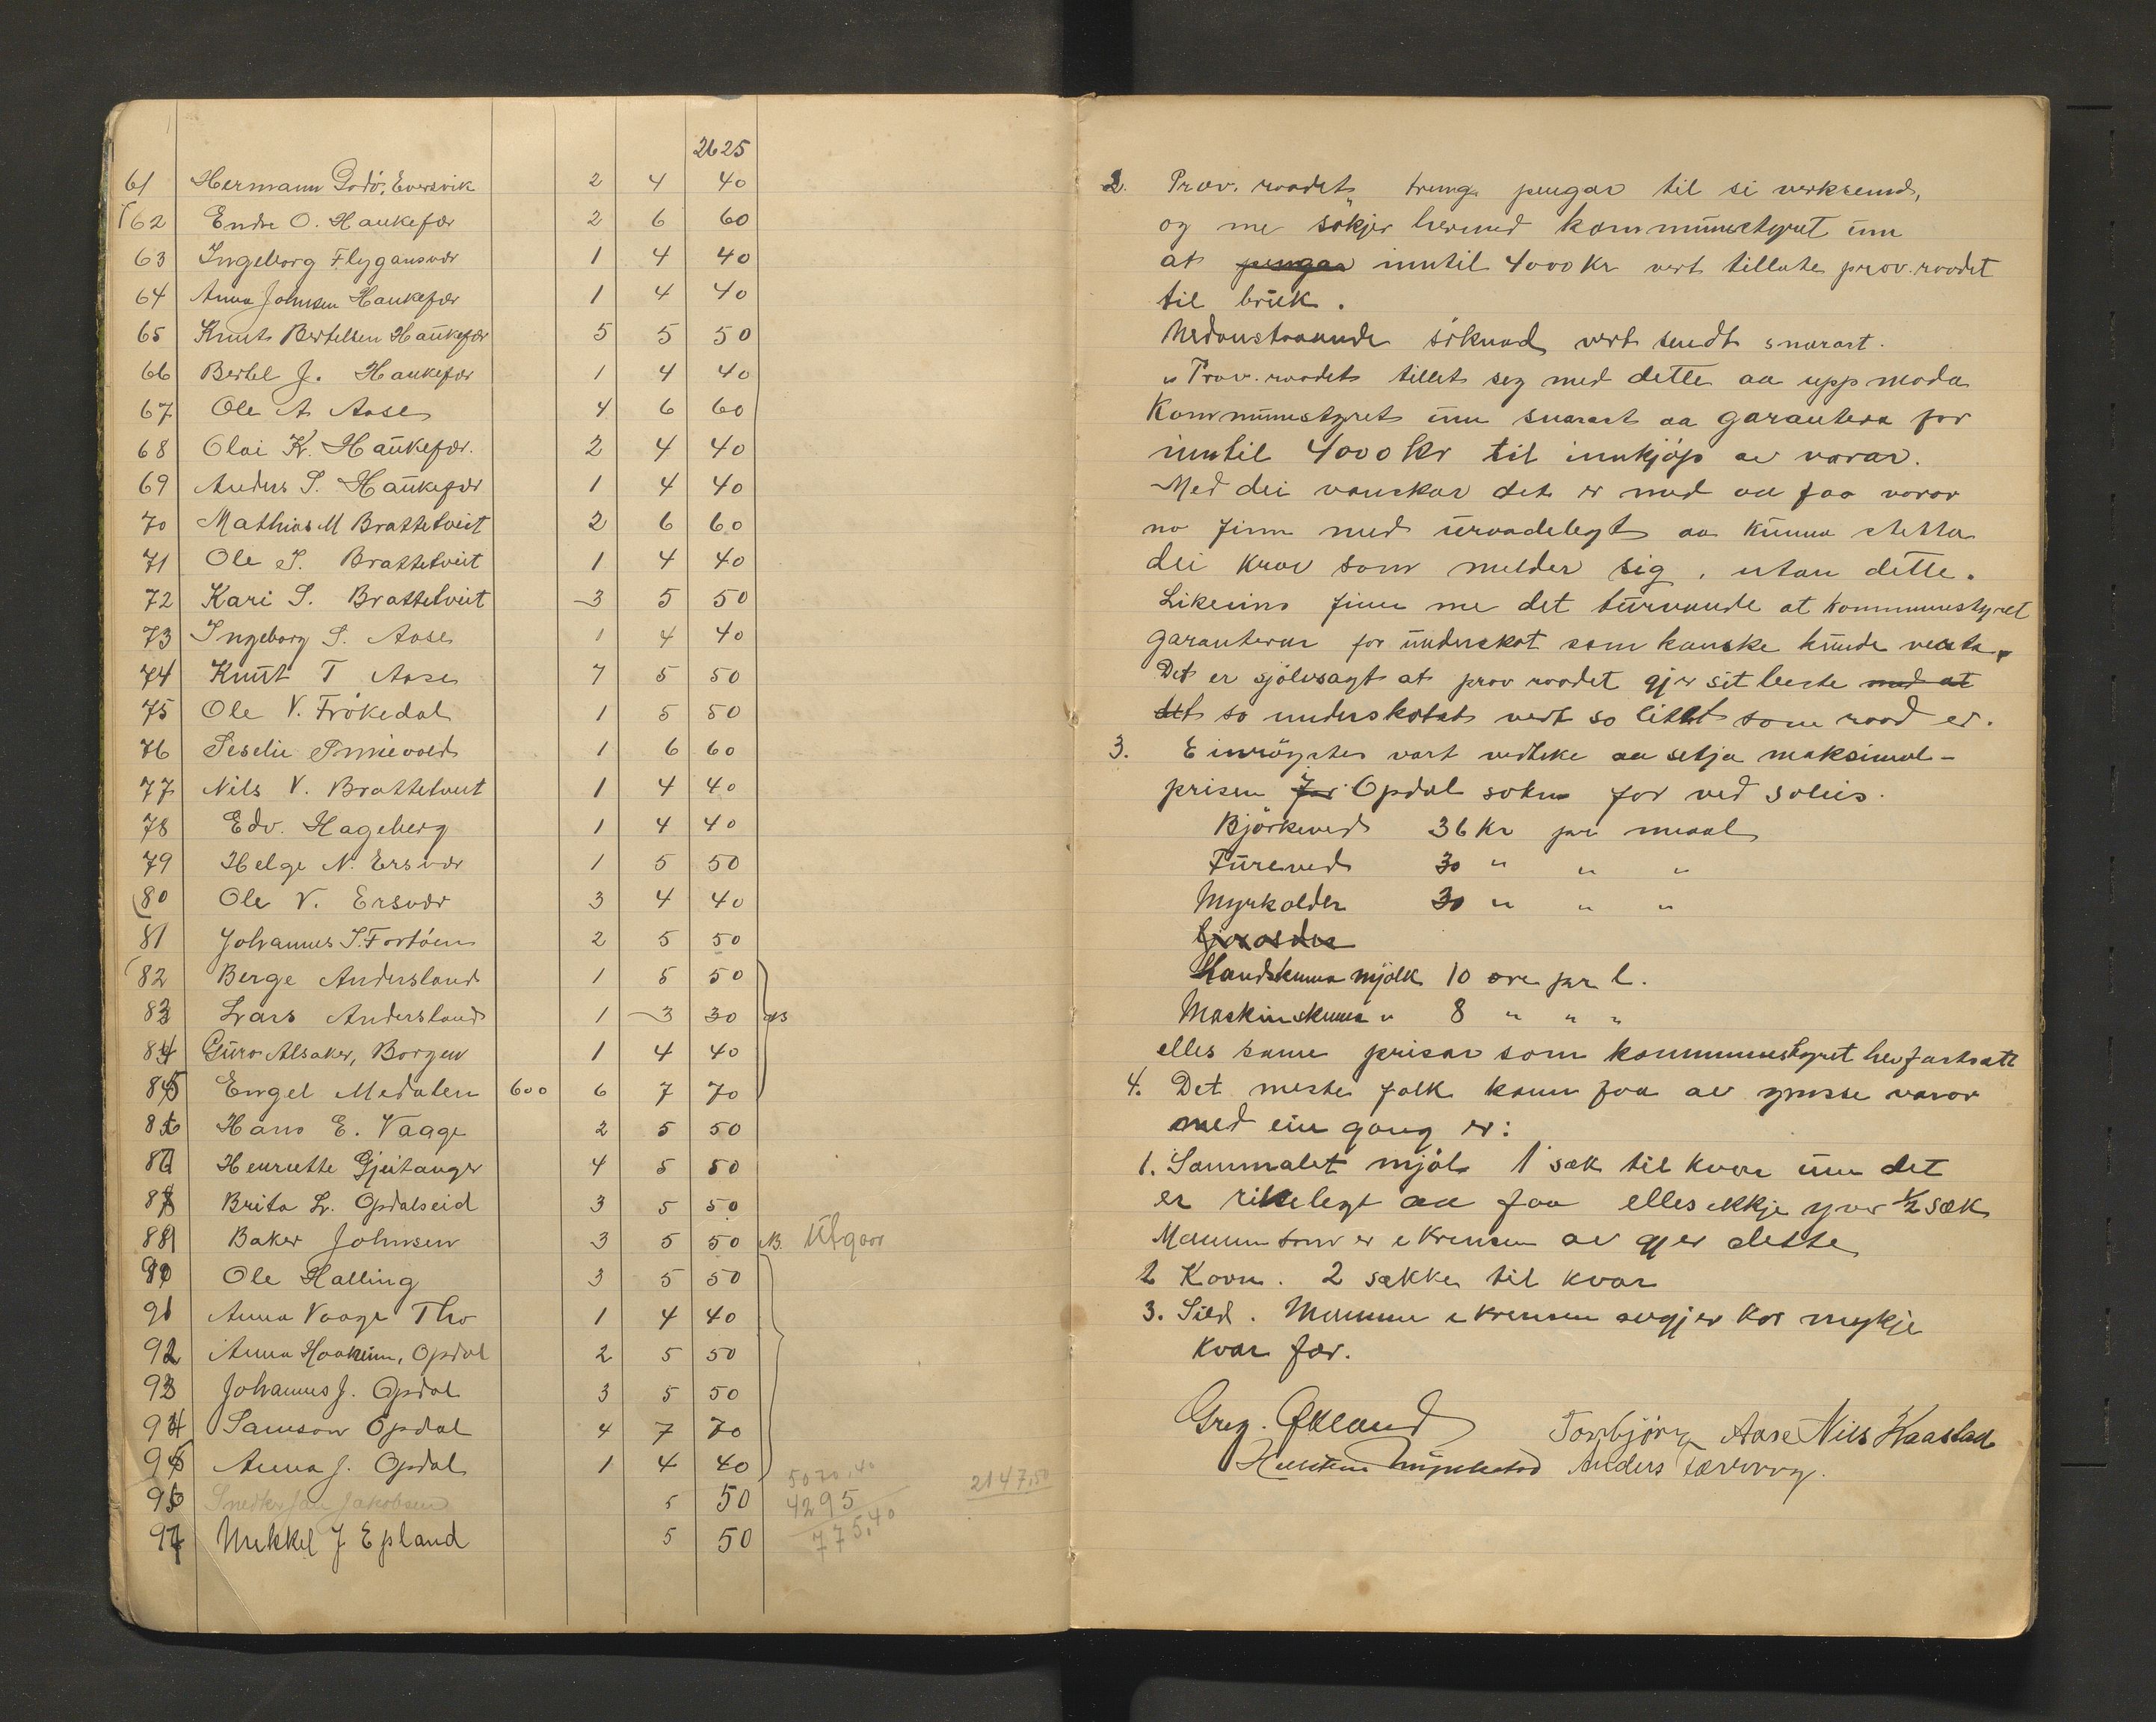 2625
61 Hermann Godö, Eversvik 2 4 40
62 Endre O. Haukefær 2 6 60
63 Ingeborg Flygansvær 1 4 40
64 Anna Johnsen Haukefær 1 4 40
65 Knut Bertelsen Haukefær 5 5 50
66 Bertel J. Haukefær 1 4 40
67 Ole A Aase 4 6 60
68 Olai K. Haukefær. 2 4 40
69 Anders S. Haukefær 1 4 40
70 Mathias M Brattetveit 2 6 60
71 Ole S. Brattetveit 1 4 40
72 Kari S. Brattetveit 3 5 50
73 Ingeborg S. Aase 1 4 40
74 Knut T Aase 7 5 50
75 Ole V. Frökedal 1 5 50
76 Seselie 1 6 60
77 Nils V. Brattetveit 1 4 40
78 Edv. Hageberg 1 4 40
79 Helge N. Ersvær 1 5 50
80 Ole V. Ersvær 3 4 40
81 Johannes S. Fortöen 2 5 50
82 Berge Andersland 1 5 50
83 Lars Andersland 1 3 30
84 Guro Alsaker, Borgen 1 4 40
85 Engel Medalen 600 6 7 70
86 Hans E. Vaage 2 5 50
87 Henriette Gjeitanger 4 5 50
88 Brita L. Opdalseid 3 5 50
89 Baker Johnsen 3 5 50 NB. Utgaar
90 Ole Halling 3 5 50
91 Anna Vaage Tho 1 4 40
92 Anna Haaheim, Opdal 2 5 50
93 Johannes J. Opdal 3 5 50
94 Samson Opdal 4 7 70
95 Anna J. Opdal 1 4 40
96 Snedker Jan Jakobsen 5 50
97 Mikkel J Epland 5 50
5070,40
4295
775,40
2147,50
2. Prov. raadet treng pengar til si verksemd,
og me sökjer hermed kommunestyret um
at pengar inntil 4000 kr vert tillate prov. raadet
til bruk.
Nedanstaaande söknad vert sendt snarast.
"Prov. raadet tillet seg med dette aa uppmoda
Kommunestyret um snarast aa garantera for
inntil 4000 kr til innkjöp av varar.
Med dei vanskar det er med aa faa varor
no finn med uraadelegt aa kunna stetta
dei krav som melder sig, utan dette.
Likeeins finn me det turvande at kommunestyret
garanterar for underskot som kanske kunde venta.
Det er sjölvsagt at prov raadet gjer sit beste med at
det so underskotet vert so litet som raad er.
3. Einröystes vart vedteke aa setja maksimal-
prisen for Opdal sokn for ved soleis.
Björkeved 36 kr pr maal
Fureved 30 " " "
Myrkolder 30 " " "
Handskuma mjölk 10 öre pr l.
Maskinskuma " 8 " " "
elles same prisar som kommunestyret hev fastsatt
4. Det meste folk kann faa av ymsse varor
med ein gang er:
1. Sammalet mjöl 1 sæk til kvar um det
er rikelegt aa faa elles ikkje yver 1/2 sæk
Mannen som er i krinsen avgjer dette
2 Korn. 2 sekker til kvar
3. Sild. Mannen i krinsen avgjer kor mykje
kvar fær.
Greg. Økland Torbjörg Aase Nils Haastad
Anders Tærevaag.